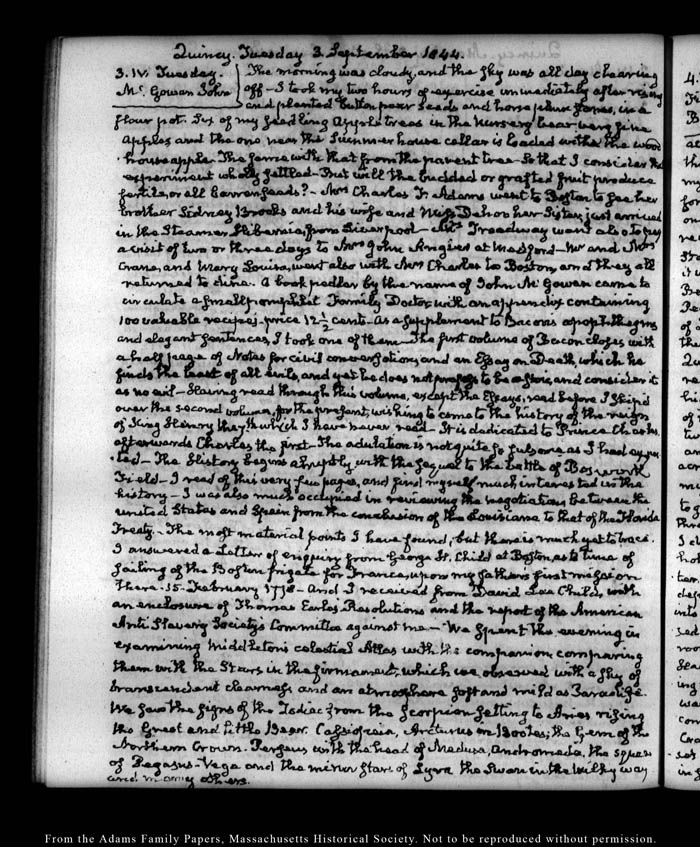 Quincy. Tuesday 3. September 1844.
3. IV: Tuesday. The morning was cloudy, and the sky was all day clearing
Mc. Gowan John off - I took my two hours of exercise immediately after rising
and planted button pear seeds and horse plum stones, in a
flour pot. Six of my seedling Apple trees in the nursery bear very fine
apples and the one near the Summer house cellar is loaded with the wood
house apple. The same with that from the parent tree - So that I consider the
experiment wholly settled - But will the budded or grafted fruit produce
fertile, or all barren seeds? - Mrs Charles Fr. Adams went to Boston to see her
brother Sidney Brooks and his wife and Miss Dehon her Sister, just arrived
in the Steamer Hibernia, from Liverpool - Mrs. Treadway went also to pay
a visit of two or three days to Mrs John Angier at Medford - Mr and Mrs
Crane, and Mary Louisa, went also with Mrs Charles to Boston, and they all
returned to dine. A book pedlar by the name of John McGowen came to
circulate a small pamphlet Family Doctor, with an appendix containing
100 valuable recipes - price 12½ cents - As a supplement to Bacons apophthegms
and elegant sentences, I took one of them - The first volume of Bacon closes with
a half page of Notes for civil conversation, and an Essay on Death, which he
finds the least of all evils, and yet he does not profess to be a Stoic, and consider it
as no evil - Having read through this volume, except the Essays, read before I skip'd
over the second volume, for the present, wishing to come to the history of the reign
of King Henry the 7th which I have never read - It is dedicated to Prince Charles
afterwards Charles the first - The adulation is not quite so fulsome as I had expec
ted - The History begins abruptly with the sequel to the battle of Bosworth
Field - I read of this very few pages, and find myself much interested in the
history - I was also much occupied in reviewing the negotiations between the
United States and Spain from the conclusion of the Louisiana to that of the Florida
Treaty. - The most material points I have found, but there is much yet to trace.
I answered a Letter of enquiry from George H. Child at Boston, as to time of
sailing of the Boston frigate for France, upon my fathers first mission
there. 15. February 1778 - And I received from David Lee Child, with
an enclosure of Thomas Earle's Resolutions and the report of the American
Anti Slavery Society's Committee against me - We spent the evening in
examining Middleton's celestial Atlas with the companion; comparing
them with the Stars in the firmament, which we observed with a sky of
transcendent clearness and an atmosphere soft and mild as Paradise.
We saw the signs of the Zodiac from the Scorpion setting to Aries rising
the Great and Little Bear. Cassiopeia, Arcturus in Bootes; the Gem of the
Northern Crown. Perseus with the head of Medusa, Andromeda, the square
of Pegasus - Vega and the minor stars of Lyra the Swan in the Milky way
and many others.
From the Adams Family Papers, Massachusetts Historical Society. Not to be reproduced without permission.